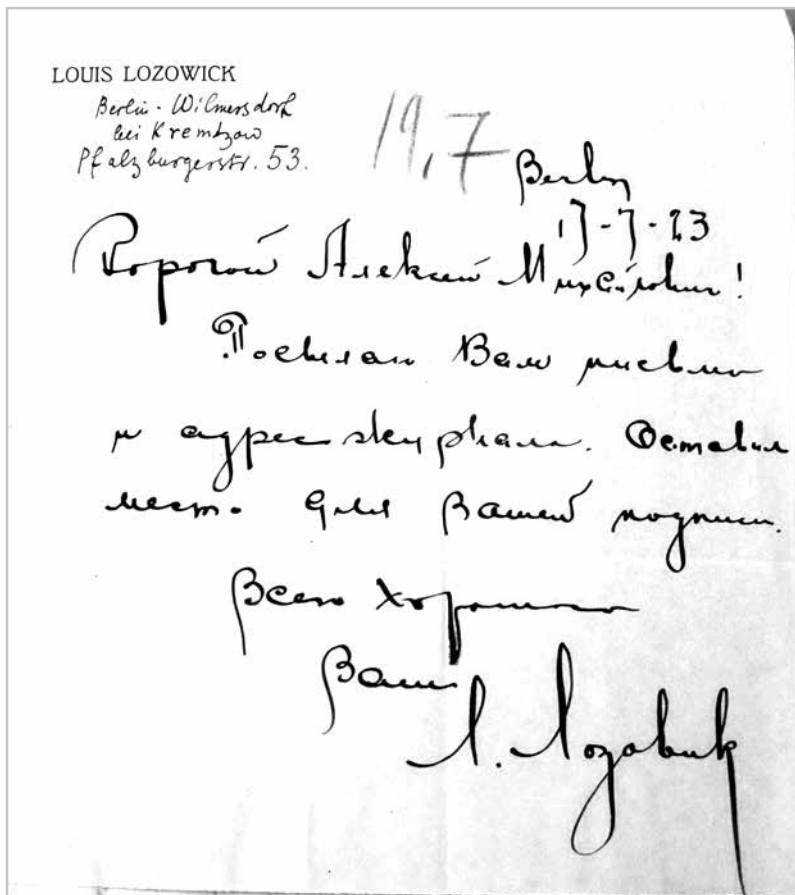 LOUIS LOZOWICK
Berlin - Wilmersdorf
bei Kremtzow
Pfalzburgerstr. 53.
19,7
Berlin
17-7-23
Дорогой Алексей Михайлович!
Посылаю Вам письмо
и адрес журнала. Оставил
место для Вашей подписи.
Всего хорошего
Ваш
Л. Лозовик